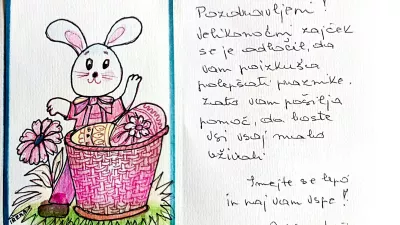 Pozdravljeni!
Velikonočni zajček
se je odločil, da
vam poizkuša
polepšati praznike.
Zato vam pošilja
pomoč, da boste
vsi vsaj malo
uživali
Imejte se lepo
in naj vam uspe!